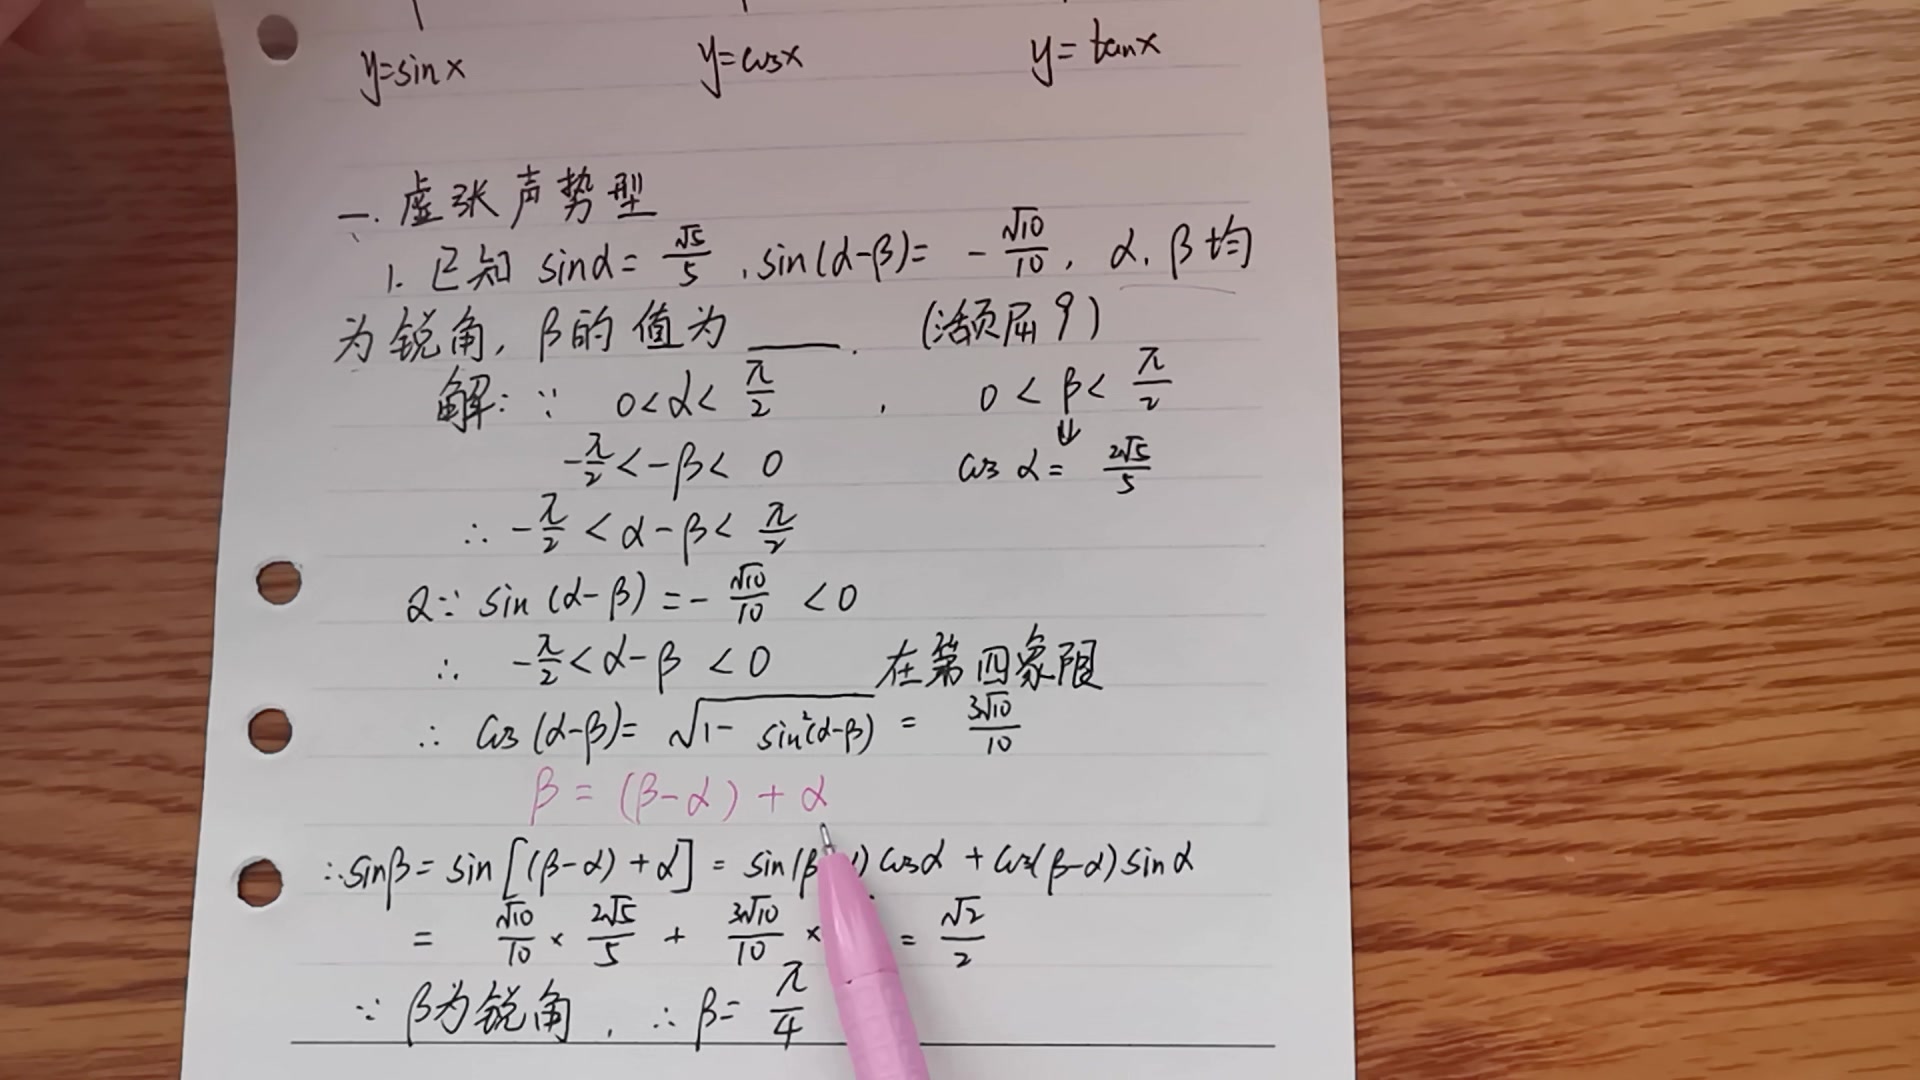 y=sinx y=cosx y=tanx
一. 虚张声势型
1. 已知 sinα=√5/5, sin(α-β)= -√10/10, α, β均
为锐角, β的值为____. (活页届9)
解: ∵ 0<α<π/2, 0<β<π/2
-π/2<-β<0 cosα=2√5/5
∴ -π/2<α-β<π/2
又∵ sin(α-β)=-√10/10 <0
∴ -π/2<α-β<0 在第四象限
∴ cos(α-β)=√(1-sin²(α-β)) = 3√10/10
β=(β-α)+α
∴sinβ=sin[(β-α)+α]=sin(β )cosα+cos(β-α)sinα
= √10/10×2√5/5+3√10/10× =√2/2
∵ β为锐角, ∴ β=π/4